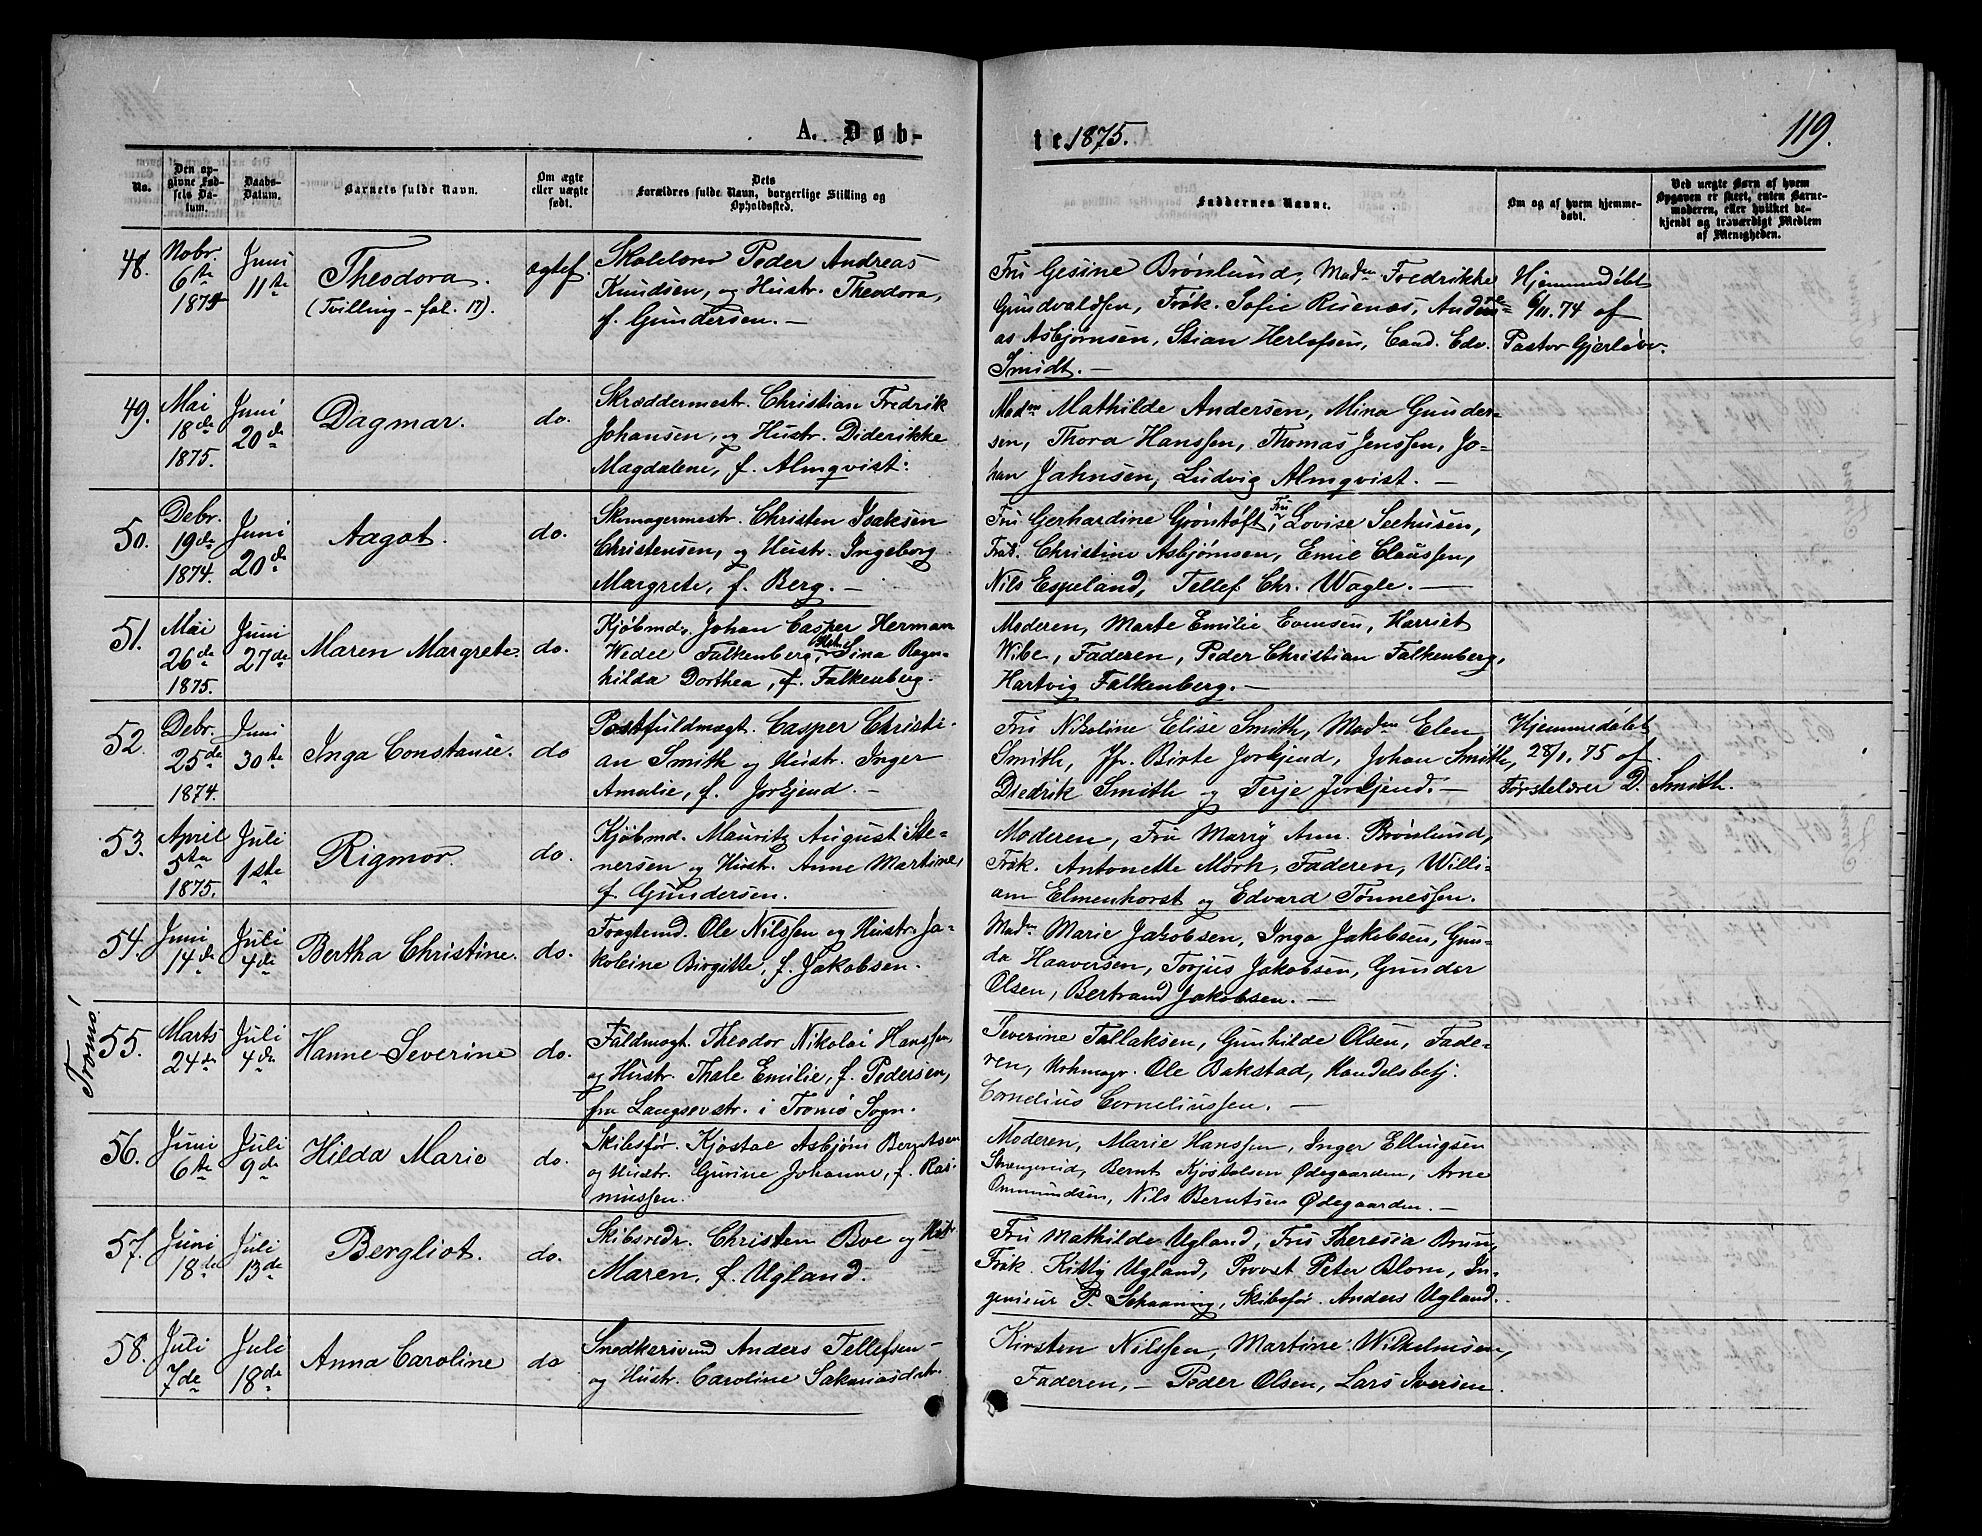 A. Døb-
te 1875.
119.
No.
Den op-
givne Fød-
sels Da-
tum.
Daabs-
Datum.
Barnets fulde Navn.
Om ægte
eller uægte
født.
Dets
Forældres fulde Navn, borgerlige Stilling og
Opholdssted.
Faddernes Navne.
Om og af hvem hjemme-
døbt.
Ved uægte Børn af hvem
Opgaven er skeet, enten Barne-
moderen, eller hvilket be-
kjendt og troværdigt Medlem
af Menigheden.
48.
Nobr.
6te
1874
Juni
11te
Theodora.
(Tvilling - fol. 17).
ægtef.
Peder Andreas
Knudsen, og Hustr. Theodora,
f. Gundersen. —
Fru Gesine Brønlund, Madm Fredrikke
Gundvaldsen, Frøk. Sofie Ruenæs, Andre-
as Asbjørnsen, Stian Herlofsen, Cand. Edv.
Smidt. —
Hjemmedøbt
6/11. 74 af
Pastor Gjerløw.
49.
Mai
18de
1875.
Juni
20de
Dagmar.
do.
Skræddermestr. Christian Fredrik
Johansen, og Hustr. Diderikke
Magdalene, f. Almqvist.
Madm Mathilde Andersen, Mina Gunder-
sen, Thora Hanssen, Thomas Jenssen, Jo-
han Jahnsen, Ludvig Almqvist. —
50.
Debr.
19de
1874.
Juni
20de
Aagot.
do.
Skomagermestr. Christen Isaksen
Christensen, og Hustr. Ingeborg
Margrete, f. Berg. —
Fru Gerhardine Grøntoft, Fru Lovise Seehusen,
Frøk. Christine Asbjørnsen, Emil Claussen,
Nils Espeland, Tellef Chr. Wagle. —
51.
Mai
26de
1875.
Juni
27de
Maren Margrete.
do.
Kjøbmd. Johan Casper Herman
Wedel Falkenberg, Hstr. Sina Ragn-
hilda Dorthea, f. Falkenberg.
Moderen, Marte Emilie Evensen, Harriet
Wibe, Faderen, Peder Christian Falkenberg,
Hartvig Falkenberg. —
52.
Debr.
25de
1874.
Juni
30te
Inga Constance.
do
Postfuldmægt. Casper Christi-
an Smith og Hustr. Inger
Amalie, f. Jorkjend. —
Fru Nikoline Elise Smith, Madm Elen
Smith, Jfr. Birte Jorkjend, Johan Smith,
Diedrik Smith og Terje Jorkjend. —
Hjemmedøbt
28/1. 75 af
Førstelærer D. Smith.
53.
April
5te
1875.
Juli
1ste
Rigmor.
do.
Kjøbmd. Mauritz August Ste-
nersen og Hustr. Anne Martine,
f. Gundersen.
Moderen, Fru Marry Ann. Brønlund,
Frøk. Antonette Mørk, Faderen, Willi-
am Elmenhorst og Edvard Tønnessen.
54.
Juni
14de
Juli
4de
Bertha Christine.
do.
Fragtemd. Ole Nilssen og Hustr. Ja-
kobine Birgitte, f. Jakobsen.
Madm Marie Jakobsen, Inga Jakobsen, Gun-
da Haaversen, Torjus Jakobsen, Gunder
Olsen, Bertrand Jakobsen. —
Tromø!
55.
Marts
24de
Juli
4de
Hanne Severine
do.
Fuldmægt. Theodor Nikolai Hanssen
og Hustr. Thale Emilie, f. Pedersen,
fra Langsevstr. i Tromø Sogn.
Severine Tallaksen, Gunhilde Olsen, Fade-
ren, Urhmagr. Ole Bakstad, Handelsbetj.
Cornelius Corneliussen. —
56.
Juni
6te
Juli
9de
Hilda Marie
do.
Skibsfør. Kjøstol Asbjørn Berntsen
og Hustr. Gurine Johanne, f. Ras-
mussen.
Moderen, Marie Hanssen, Inger Ellingsen
Strengereid, Bernt Kjøstolsen Ødegaarden, Arne
Ommundsen, Nils Berntsen Ødegaarden. —
57.
Juni
18de
Juli
13de
Bergliot.
do.
Skibsredr. Christen Boe og Hstr
Maren, f. Ugland.
Fru Mathilde Ugland, Fru Theresia Brun,
Frøk. Kitty Ugland, Provst Peter Blom, In-
genieur P. Schaaning, Skibsfør. Anders Ugland.
58.
Juli
7de
Juli
18de
Anna Caroline
do
Snedkersvend Anders Tellefsen
og Hustr. Caroline Sakariasdatr.
Kirsten Nilssen, Martine Wilhelmsen,
Faderen, — Peder Olsen, Lars Iversen.